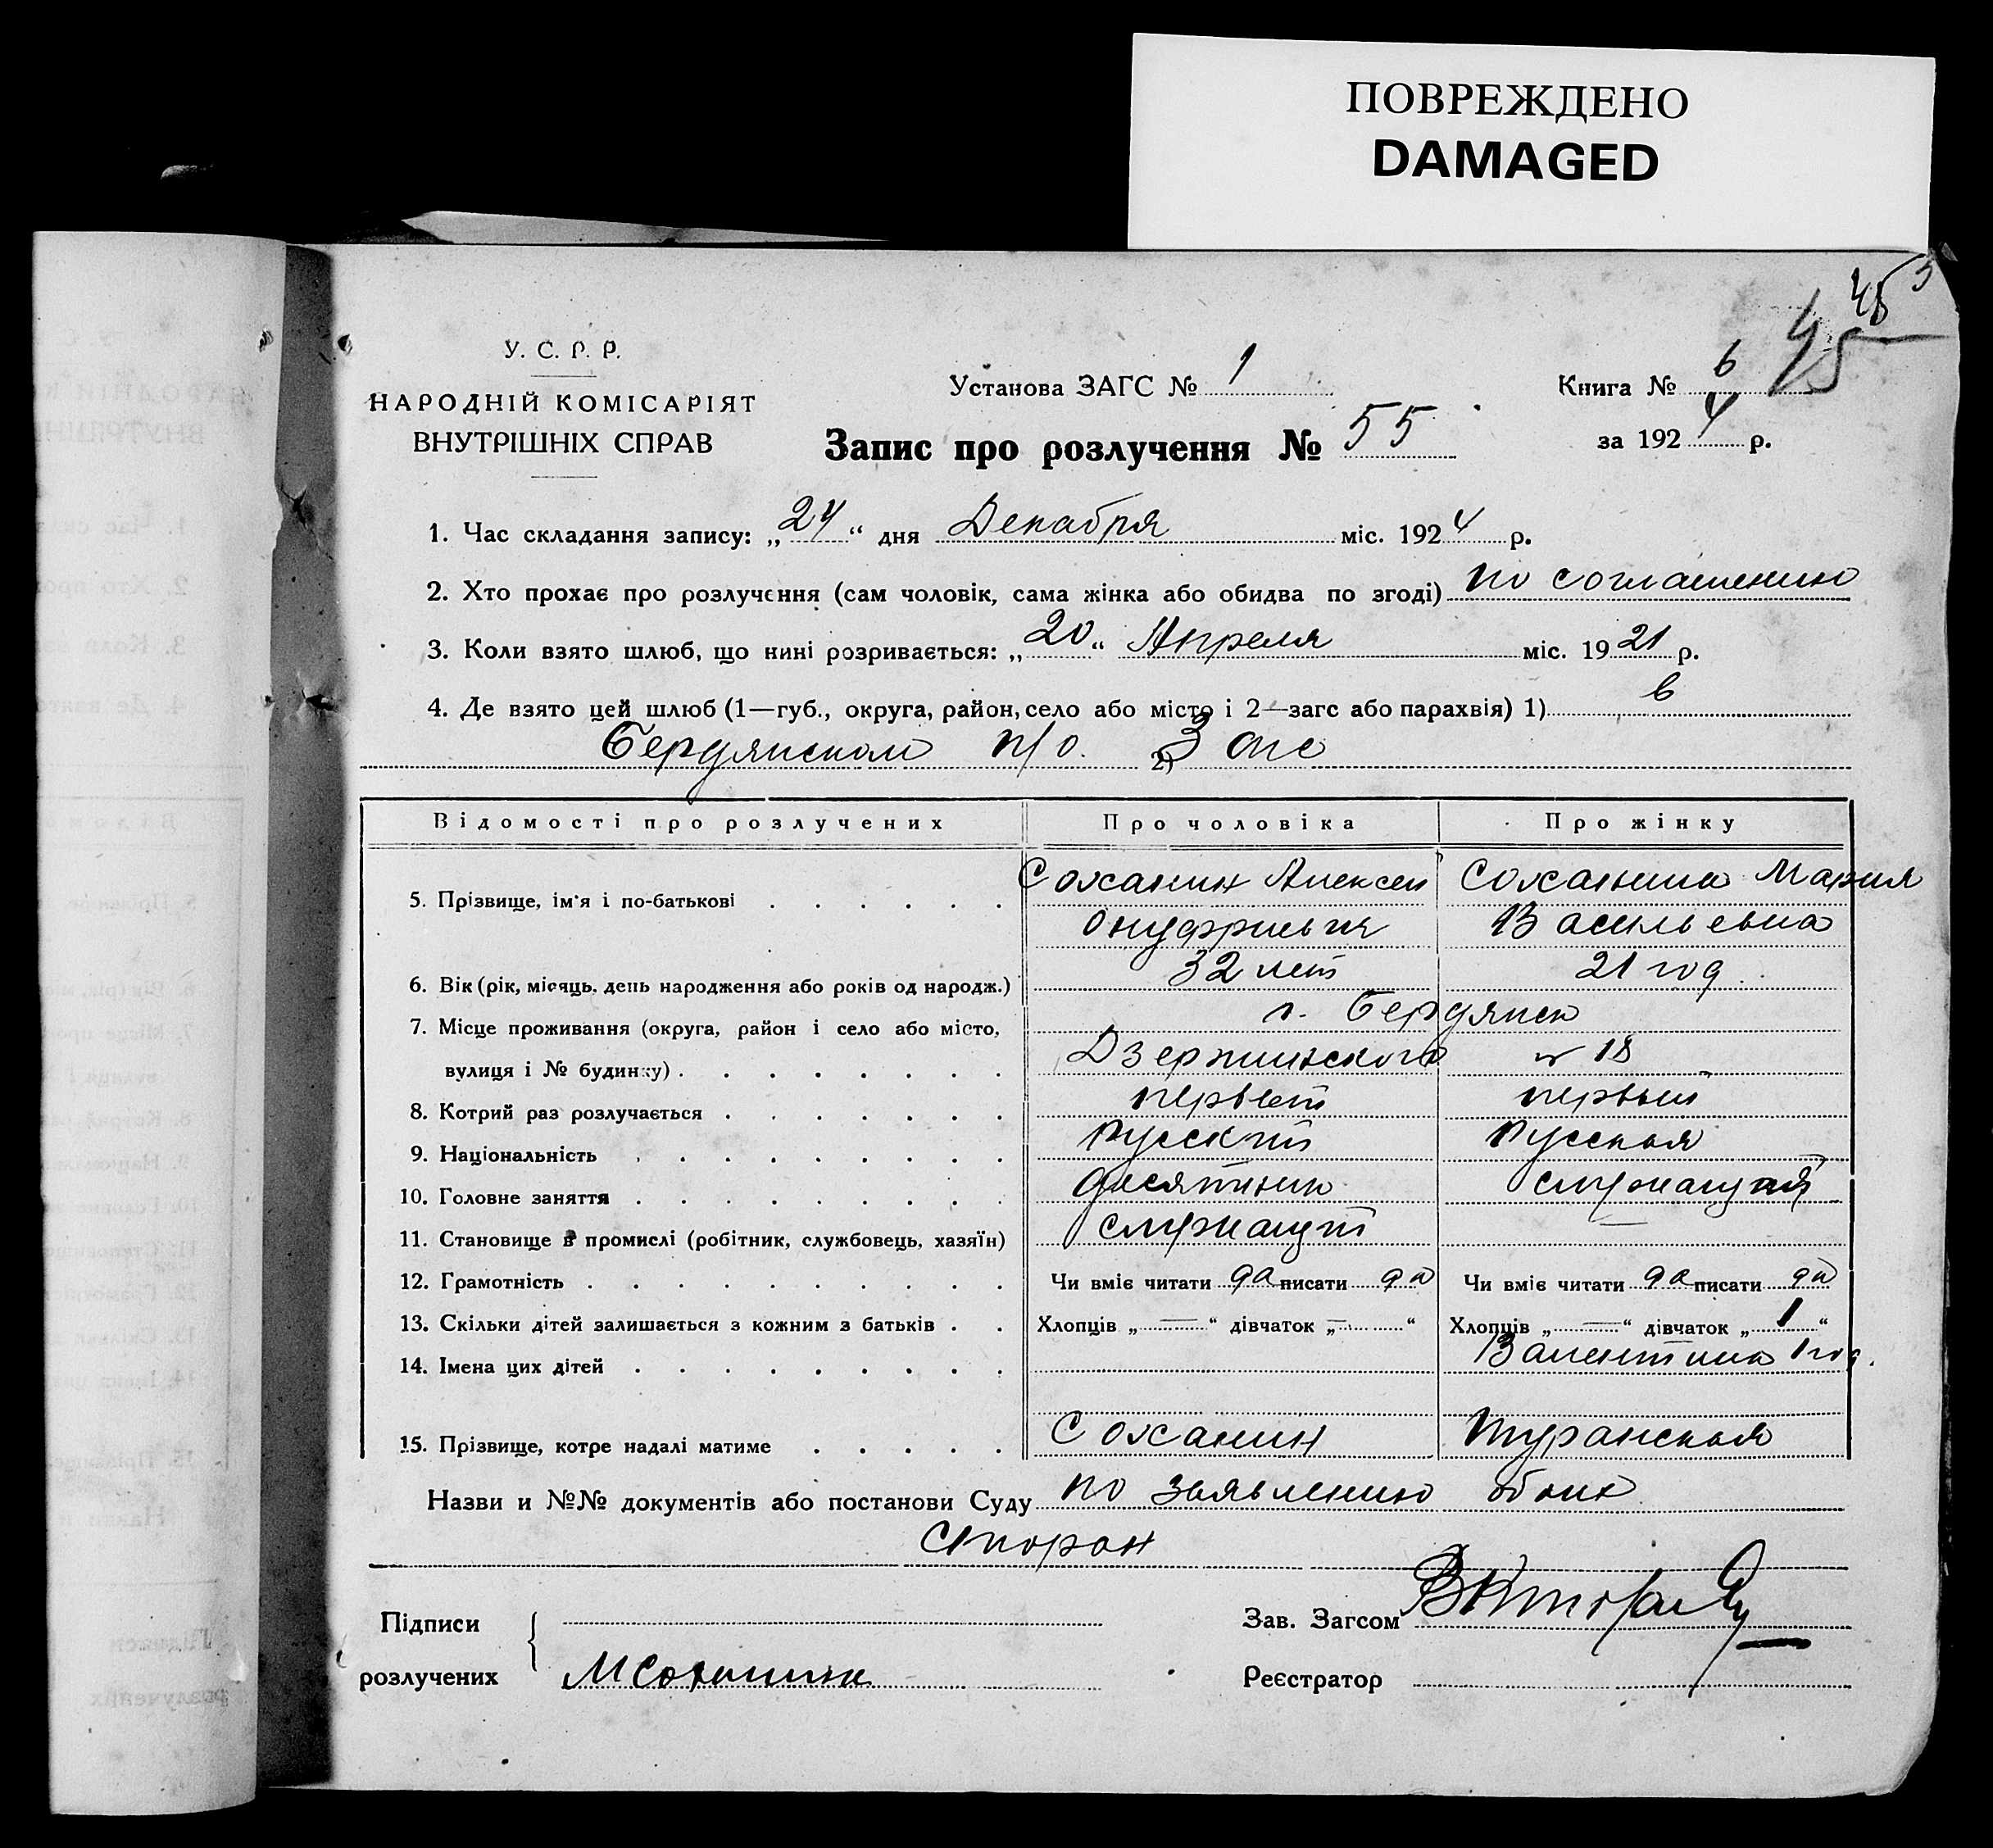 ПОВРЕЖДЕНО
DAMAGED
45
45
У. С. Р. Р.
НАРОДНІЙ КОМІСАРІЯТ
ВНУТРІШНІХ СПРАВ
Установа ЗАГС № 1
Книга № 6
за 1924 р.
Запис про розлучення № 55
1. Час складання запису: „24“ дня Декабря міс. 1924 р.
2. Хто прохає про розлучення (сам чоловік, сама жінка або обидва по згоді) по соглашению
3. Коли взято шлюб, що нині розривається: „20“ Апреля міс. 1921 р.
4. Де взято цей шлюб (1—губ., округа, район, село або місто і 2—загс або парахвія) 1) в
Бердянском п/о. 2) Загс
Відомості про розлучених Про чоловіка Про жінку
5. Прізвище, ім'я і по-батькові Соханин Алексей Соханина Мария
Онуфриевич Васильевна
6. Вік (рік, місяць, день народження або років од народж.) 32 лет 21 год
7. Місце проживання (округа, район і село або місто, г. Бердянск
вулиця і № будинку) Дзержинского № 18
8. Котрий раз розлучається первый первый
9. Національність русский русская
10. Головне заняття десятник служащая
11. Становище в промислі (робітник, службовець, хазяїн) служащий —
12. Грамотність Чи вміє читати да писати да Чи вміє читати да писати да
13. Скільки дітей залишається з кожним з батьків Хлопців „—“ дівчаток „—“ Хлопців „—“ дівчаток „1“
14. Імена цих дітей Валентина 1 год.
15. Прізвище, котре надалі матиме Соханин Туранская
Назви и №№ документів або постанови Суду по заявлению обоих
сторон
Підписи
розлучених МСоханина
Зав. Загсом
Реєстратор